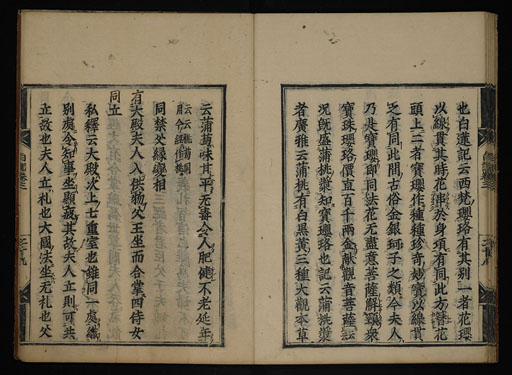 也白蓮記云西梵瓔珞有其別一者花瓔
以線貫其時花串於身項有同此方簪花
頭上二者寶瓔作種種珍奇妙寶以線貫
之有同此間古俗金銀珂子之類今夫人
乃是寶瓔即同法花无盡意菩薩解頸衆
寶珠瓔珞價直百千兩金献觀音菩薩云
况既盛蒲桃漿知寶瓔珞也記云蒲桃漿
者廣雅云蒲桃有白黒黄三種大觀本草
云蒲萄味甘平无毒令人肥健不老延年
同禁父縁變相
有大殿夫人入供物父王坐而合掌四侍女
同立
私釋云大殿次上七重室也雖同一處織
別處令知事坐顯其故夫人立則可共
立故也夫人立礼也大國法坐无礼也父